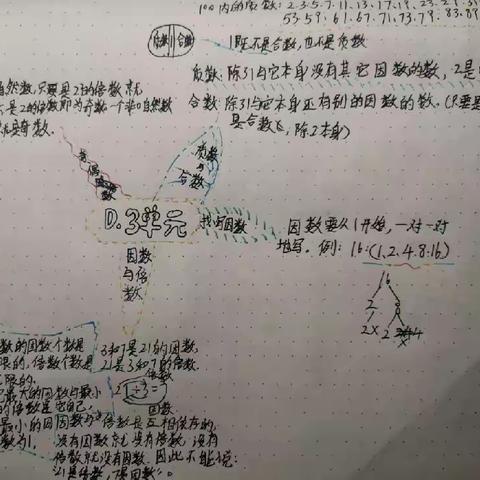 100内的质数：2.3.5.7.11.13.17.19.23.29.31
53.59.61.67.71.73.79.83.89
质数 1 合数
1既不是合数，也不是质数
质数：除1与它本身没有其它因数的数，2是
合数：除1与它本身还有别的因数的数.（只要是
是合数，除2本身）
自然数，只要是2的倍数就
是2的倍数即为奇数一个非0自然数
就是奇数.
奇偶
质数与合数
D.3单元
找因数
因数要从1开始，一对一对
地写. 例：16:(1.2.4.8.16)
16
2 8
2 × 2 4
因数与倍数
数的因数个数是
限的，倍数个数是
无限的.
最大的因数与最小
的倍数是它自己.
最小的因数为
数为1,
3和7是21的因数,
21是3和7的倍数.
倍数
÷3=
因数
倍数是互相依存的,
没有因数就没有倍数，没有
倍数就没有因数. 因此不能说：
“21是倍数，7是因数”。